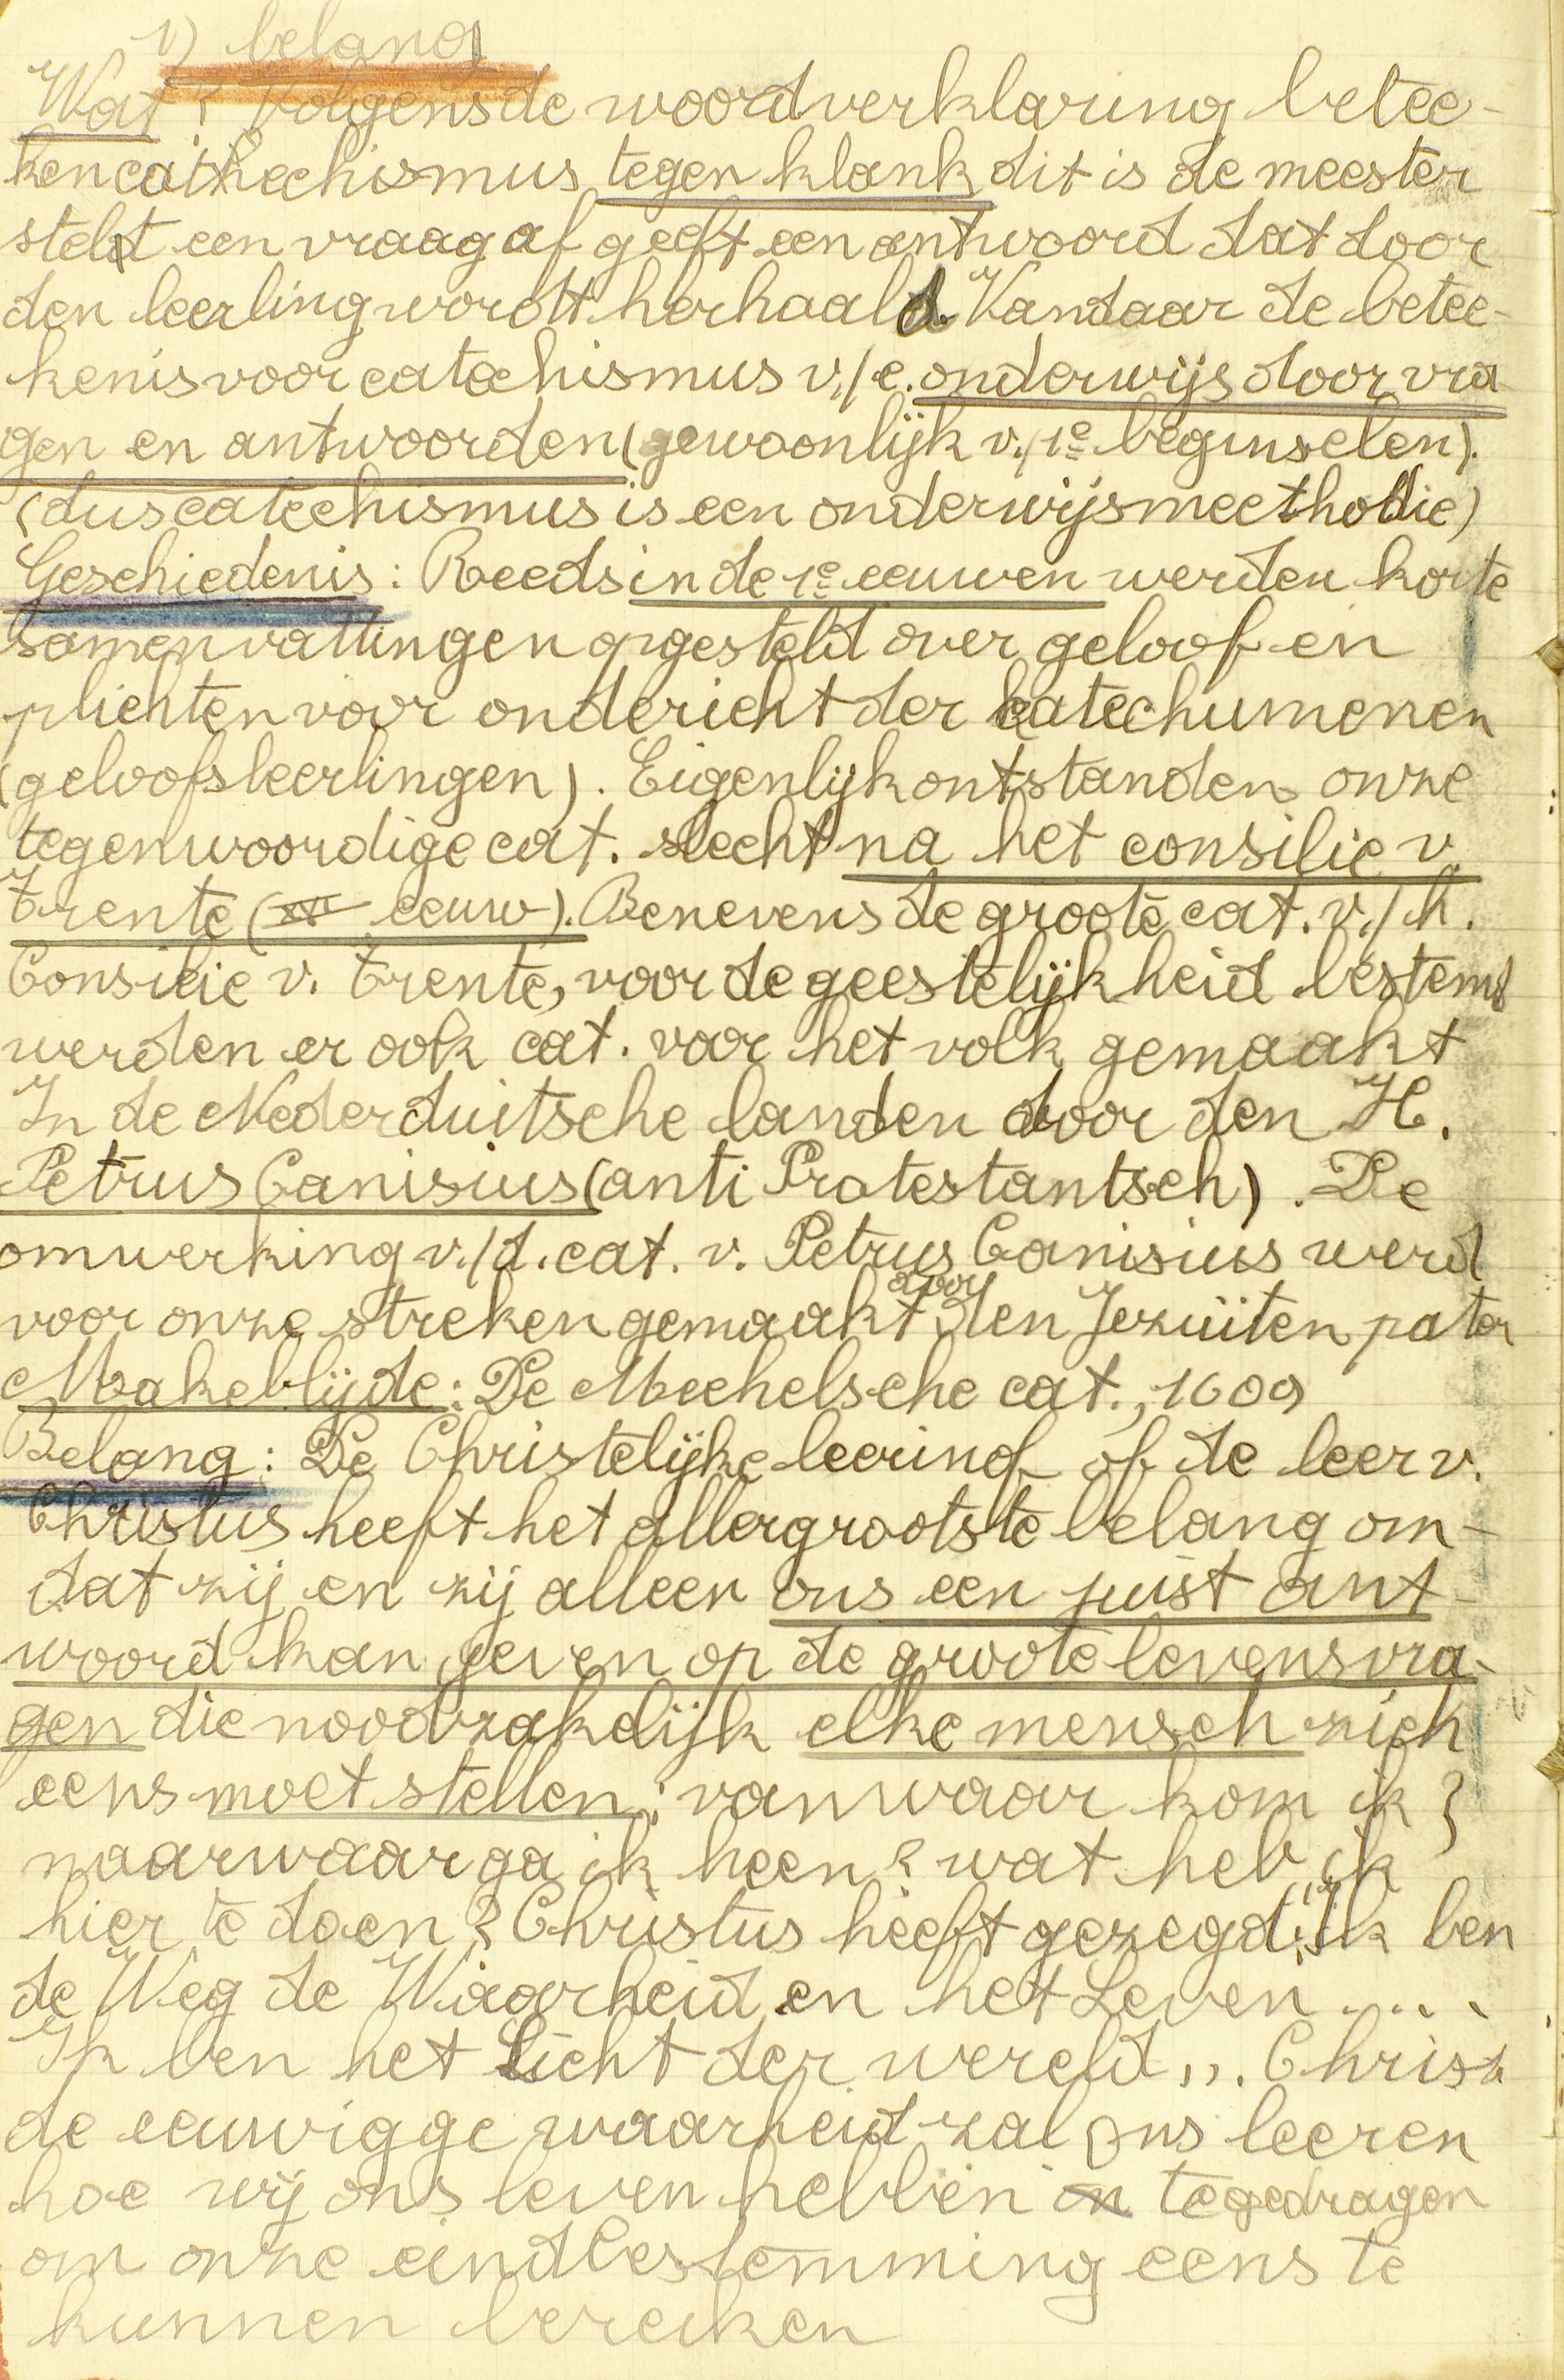 1) belang
Wat? Volgens de woordverklaring betee-
ken cathechismus tegen klank dit is de meester
stelt een vraag af geeft een antwoord dat door
den leerling wordt herhaald. Vandaar de betee-
kenis voor catechismus v./e. onderwijs door vra
gen en antwoorden (gewoonlijk v./1e beginselen).
(dus catechismus is een onderwijsmeethodie)
Geschiedenis: Reeds in de 1e eeuwen werden korte
samenvattingen opgesteld over geloof en
plichten voor ondericht der catechumenen
(geloofsleerlingen). Eigenlijk ontstanden onze
tegenwoordige cat. slecht na het consilie v.
Trente (XVI eeuw). Benevens de groote cat. v./h.
Consilie v. Trente, voor de geestelijkheid bestemd
werden er ook cat. voor het volk gemaakt
In de Nederduitsche landen door den H.
Petrus Canisius (anti Protestantsch). De
omwerking v./d. cat. v. Petrus Canisius werd
voor onze streken gemaakt door den Jezuïten pater
Makeblijde: De Mechelsche cat., 1609
Belang: De Christelijke leering of de leer v.
Christus heeft het allergrootste belang om-
dat zij en zij alleen ons een juist ant-
woord kan geven op de groote levensvra-
gen die noodzakelijk elke mensch zich
eens moet stellen: vanwaar kom ik?
naarwaar ga ik heen? wat heb ik
hier te doen? Christus heeft gezegd: "Ik ben
de Weg de Waarheid en het Leven ....
Ik ben het Licht der wereld,,. Christ
de eeuwigge waarheid zal ons leeren
hoe wij ons leven hebben te gedragen
om onze eindbestemming eens te
kunnen bereiken